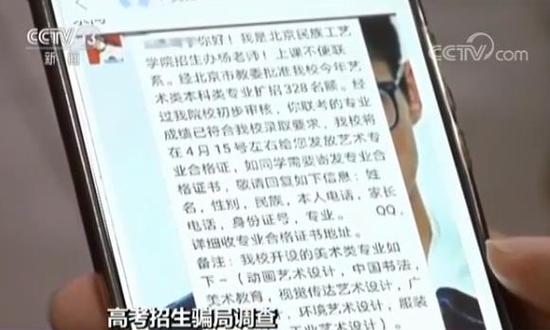 CCTV 13
新闻
CCTV.com
你好！我是北京民族工艺
学院招生办杨老师！上课不便联
系。经北京市教委批准我校今年艺
术类本科类专业扩招328名额。经
过我院校初步审核，你联考的专业
成绩已符合我校录取要求，我校将
在4月15号左右给您发放艺术专
业合格证，如同学需要寄发专业合
格证书，敬请回复如下信息：姓
名，性别，民族，本人电话，家长
电话，身份证号，专业。 QQ，
详细收专业合格证书地址。
备注：我校开设的美术类专业如
下-（动画艺术设计，中国书法，
美术教育，视觉传达艺术设计，广
，环境艺术设计，服
工业艺术设计）
高考招生骗局调查